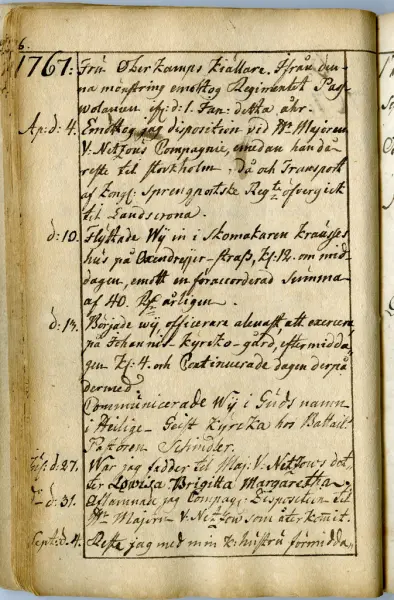 6.
1767: Fru Øberkamps Kiällare. Ifrån den-
na mönstring emottog Regimentet Pag-
wolanun d: 1. Jan: detta åhr.
Ap: d: 4. Emottog jag disposition vid Hr Majoren
V: Netzous Compagnie, emedan han då
reste til Stockholm, då och Transport
af Kongl: Sprengportske Regte öfvergick
til Landscrona.
d: 10. Flyttade Wij in i Skomakaren Krauses
hus på Oxendreijer-straß, Kl: 12. om mid-
dagen, emott en föraccorderad Summa
af 40. årligen.
d: 13. Började wij, officerare alenast att exercera
på Johannis-kyrko-gård, eftermidda-
gen Kl: 4. och Continuerade dagen derpå
dermed.
Communicerade Wij i Guds namn
i Heilige-Geist Kyrcka hos Battail:
Pastoren Schindler.
d: 27. War jag fadder til Maj: V: Netzows dot-
ter Lowisa Brigitta Margaretha.
d: 31. Aflamnade jag Compag: Disposition til
Hr Majorn V: Netzow som återkomit.
Sept: d. 4. Reste jag med min K: hustru förmidda-